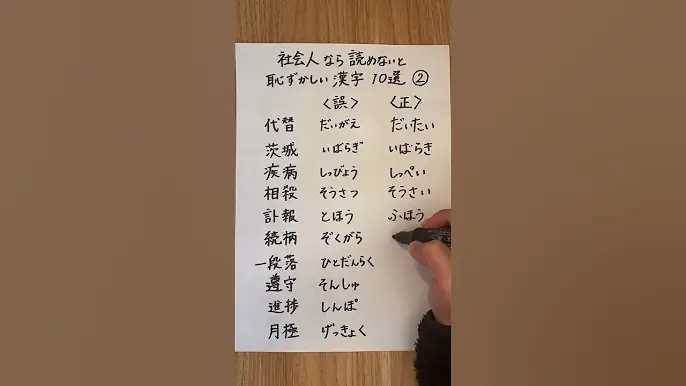 社会人なら読めないと
恥ずかしい漢字 10選 ②
〈誤〉 〈正〉
代替 だいがえ だいたい
茨城 いばらぎ いばらき
疾病 しつびょう しっぺい
相殺 そうさつ そうさい
訃報 とほう ふほう
続柄 ぞくがら
一段落 ひとだんらく
遵守 そんしゅ
進捗 しんぽ
月極 げっきょく